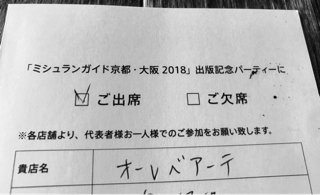 「ミシュランガイド京都・大阪 2018」出版記念パーティーに
☑ ご出席 □ ご欠席
※各店舗より、代表者様お一人様でのご参加をお願い致します。
貴店名 オーベルアーテ